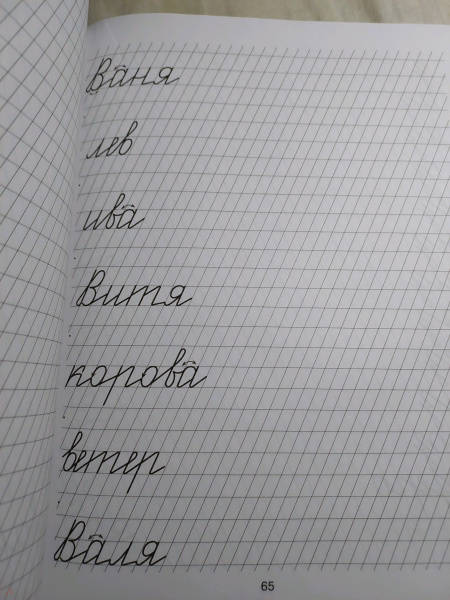 Ваня
лев
ива
Витя
корова
ветер
Валя
65